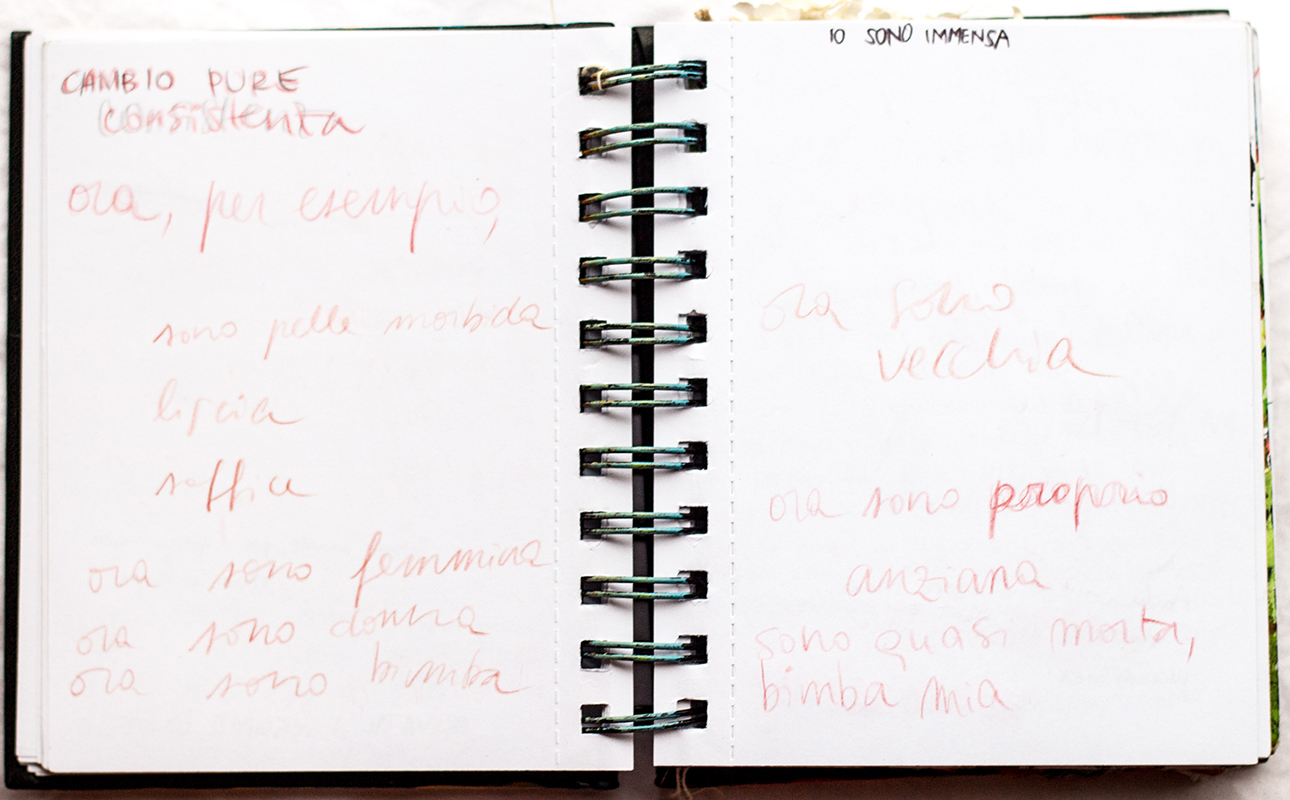 CAMBIO PURE
consistenza
ora, per esempio,
sono pelle morbida
liscia
soffice
ora sono femmina
ora sono donna
ora sono bimba
IO SONO IMMENSA
ora sono
vecchia
ora sono proprio
anziana.
sono quasi morta,
bimba mia